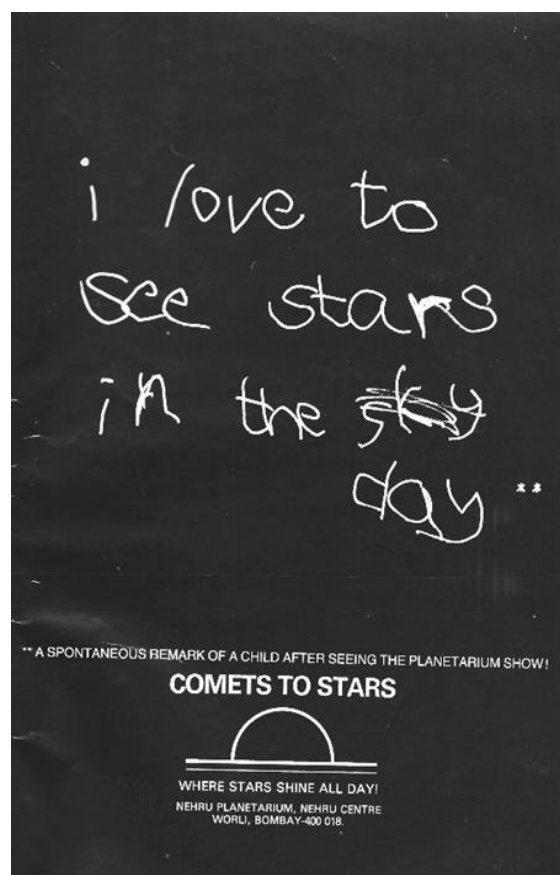 i love to
see stars
in the sky
day **
** A SPONTANEOUS REMARK OF A CHILD AFTER SEEING THE PLANETARIUM SHOW!
COMETS TO STARS
WHERE STARS SHINE ALL DAY!
NEHRU PLANETARIUM, NEHRU CENTRE
WORLI, BOMBAY-400 018.